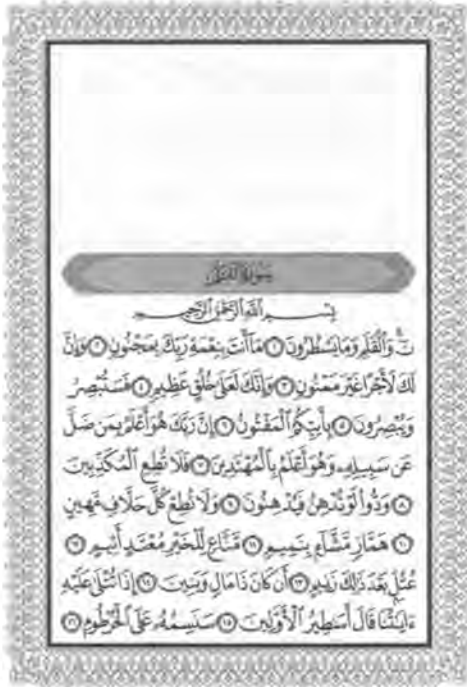 سُورَةُ القَلَمِ
بِسْمِ اللَّهِ الرَّحْمَٰنِ الرَّحِيمِ
نٓ وَٱلْقَلَمِ وَمَا يَسْطُرُونَ ١ مَآ أَنتَ بِنِعْمَةِ رَبِّكَ بِمَجْنُونٍ ٢ وَإِنَّ
لَكَ لَأَجْرًا غَيْرَ مَمْنُونٍ ٣ وَإِنَّكَ لَعَلَىٰ خُلُقٍ عَظِيمٍ ٤ فَسَتُبْصِرُ
وَيُبْصِرُونَ ٥ بِأَييِّكُمُ ٱلْمَفْتُونُ ٦ إِنَّ رَبَّكَ هُوَ أَعْلَمُ بِمَن ضَلَّ
عَن سَبِيلِهِۦ وَهُوَ أَعْلَمُ بِٱلْمُهْتَدِينَ ٧ فَلَا تُطِعِ ٱلْمُكَذِّبِينَ
٨ وَدُّوا۟ لَوْ تُدْهِنُ فَيُدْهِنُونَ ٩ وَلَا تُطِعْ كُلَّ حَلَّافٍ مَّهِينٍ
١٠ هَمَّازٍ مَّشَّآءٍۭ بِنَمِيمٍ ١١ مَّنَّاعٍ لِّلْخَيْرِ مُعْتَدٍ أَثِيمٍ ١٢
عُتُلٍّۭ بَعْدَ ذَٰلِكَ زَنِيمٍ ١٣ أَن كَانَ ذَا مَالٍ وَبَنِينَ ١٤ إِذَا تُتْلَىٰ عَلَيْهِ
ءَايَٰتُنَا قَالَ أَسَٰطِيرُ ٱلْأَوَّلِينَ ١٥ سَنَسِمُهُۥ عَلَى ٱلْخُرْطُومِ ١٦